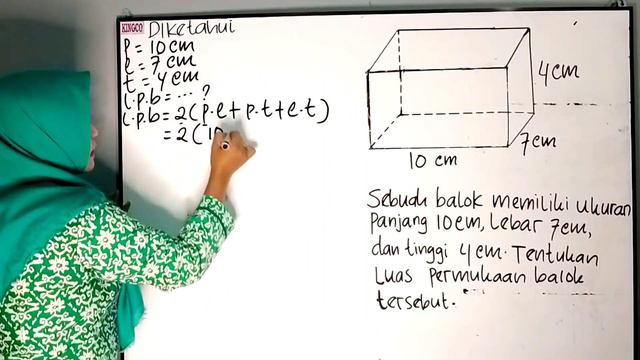 KINGCO
Diketahui
P = 10 cm
l = 7 cm
t = 4 cm
L.p.b = ... ?
L.p.b = 2(p.l + p.t + l.t)
= 2(10
4cm
7cm
10 cm
Sebuah balok memiliki ukuran
Panjang 10 cm, Lebar 7 cm,
dan tinggi 4 cm. Tentukan
Luas permukaan balok
tersebut.